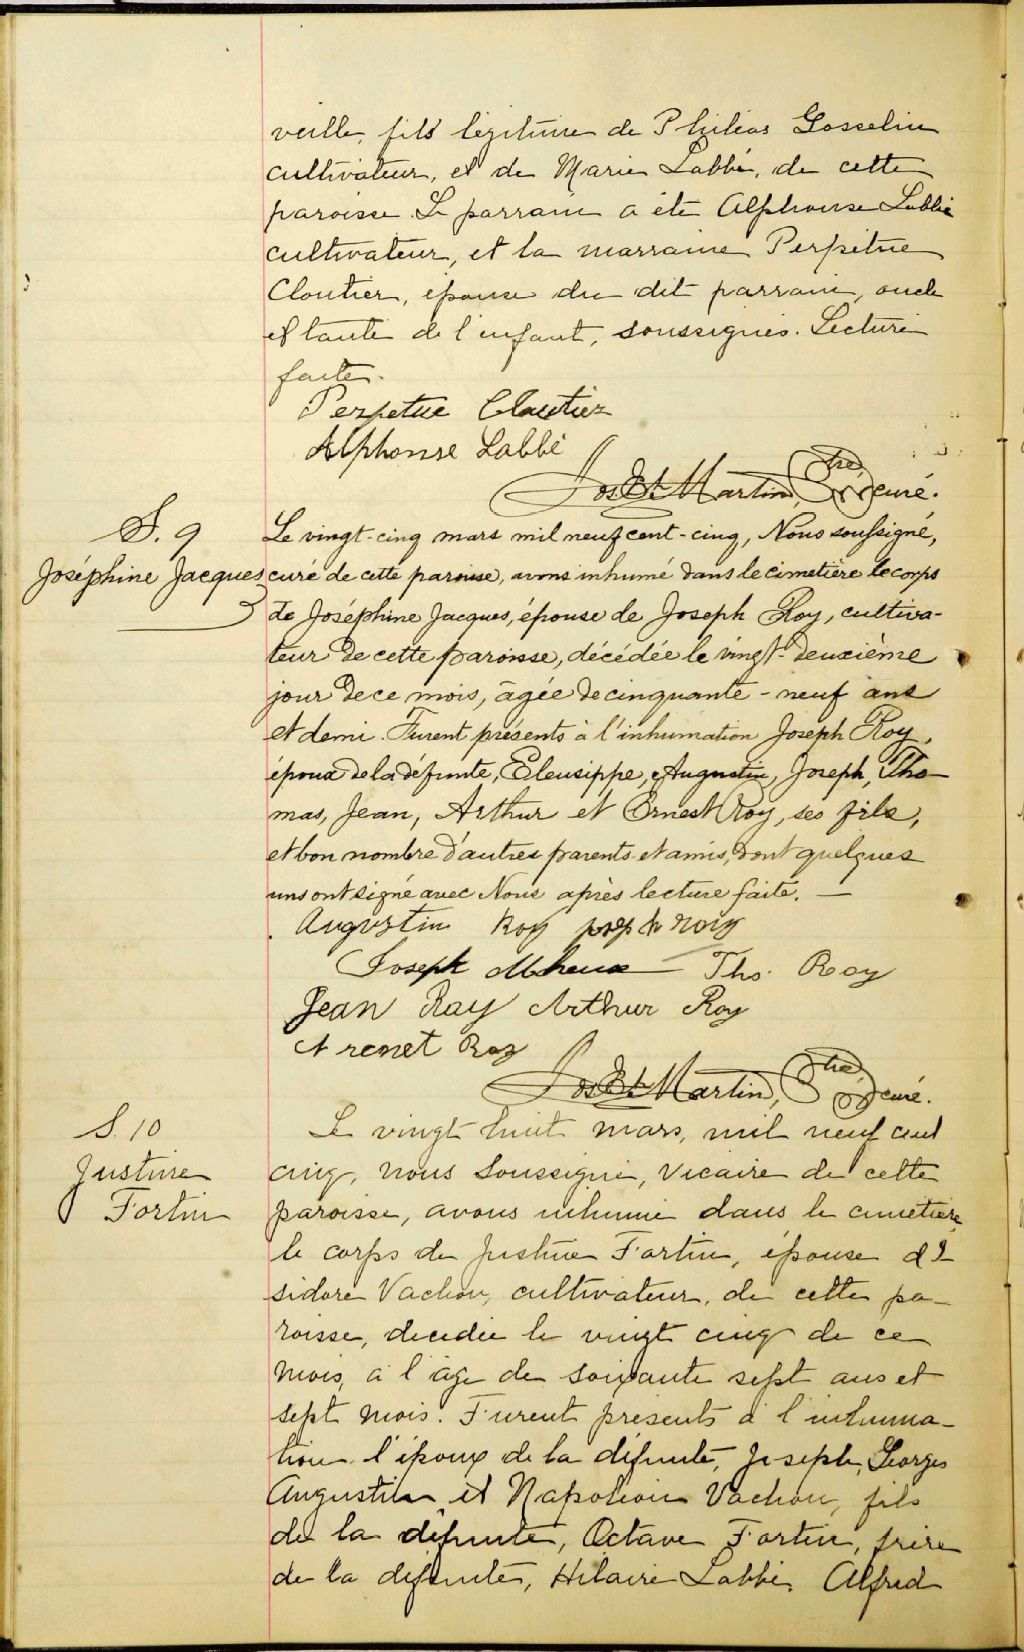 veille, fils légitime de Philéas Gosselin
cultivateur, et de Marie Labbé, de cette
paroisse. Le parrain a été Alphonse Labbé
cultivateur, et la marraine Perpétue
Cloutier, épouse du dit parrain, oncle
et tante de l'enfant, soussignés. Lecture
faite.
Perpetue Cloutier
Alphonse Labbé
Jos. Et. Martin, Ptre, curé.
S. 9
Joséphine Jacques
Le vingt-cinq mars mil neuf cent-cinq, Nous soussigné,
curé de cette paroisse, avons inhumé dans le cimetière le corps
de Joséphine Jacques, épouse de Joseph Roy, cultiva-
teur de cette paroisse, décédée le vingt-deuxième
jour de ce mois, âgée de cinquante-neuf ans
et demi. Furent présents à l'inhumation Joseph Roy,
époux de la défunte, Eleusippe, Augustin, Joseph, Tho-
mas, Jean, Arthur et Ernest Roy, ses fils,
et bon nombre d'autres parents et amis, dont quelques
uns ont signé avec Nous après lecture faite. —
Augustin Roy joseph roiy
Joseph Mheux Ths. Roy
Jean Ray Arthur Roy
Arenet Roy
Jos. Et. Martin, Ptre, curé.
S. 10
Justine
Fortin
Le vingt huit mars, mil neuf cent
cinq, nous soussigné, Vicaire de cette
paroisse, avons inhumé dans le cimetière
le corps de Justine Fortin, épouse d'I-
sidore Vachon, cultivateur, de cette pa-
roisse, décédée le vingt cinq de ce
mois, à l'âge de soixante sept ans et
sept mois. Furent présents à l'inhuma-
tion l'époux de la défunte, Joseph, Georges
Augustin et Napoléon Vachon, fils
de la défunte, Octave Fortin, frère
de la défunte, Hilaire Labbé, Alfred